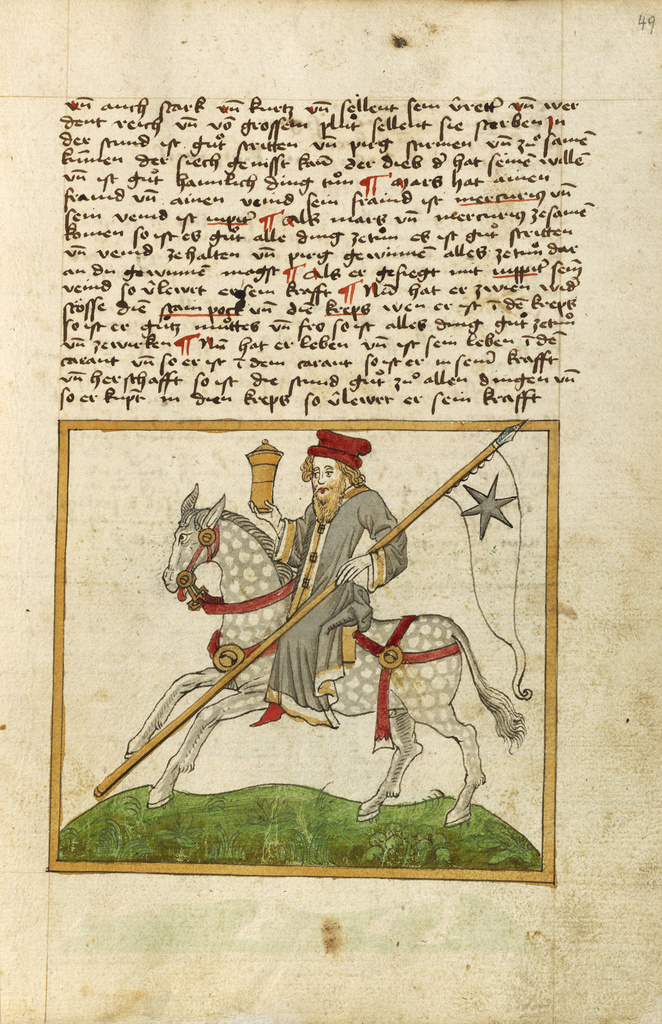 49
vñ auch stark vñ kurtz vñ sellent sein vñ wer
dent reich vñ võ grossem plůt sellent sie sterben in
der stund ist gůt stritten vñ pürg stürmen vñ zů samẽ
kumen der siech genist kaum der dieb d hat seinẽ willẽ
vñ ist gůt haimlich ding tůn ¶ Mars hat ainen
fraind vñ ainen veind sein fraind ist mercurius vñ
sein veind ist iupit ¶ Als mars vñ mercurius zesamẽ
komen so ist es gůt alle ding zetůn es ist gůt stritten
vñ veind zehalten vñ pürg gewinnen alles zetůn dar
an du gewinnẽ magst ¶ Als er gesiegt mit iuppit sein
veind so v̈lewrt er sein krafft ¶ Nũ hat er zwien wid
stösse dien stain pock vñ dien kreps wen er ist ĩ dẽ kreps
so ist er gůtz můttes vñ fro so ist alles ding gůt zetůn
vñ zewürken ¶ Nũ hat er leben vñ ist sein leben ĩ dẽ
carant vñ so er ist ĩ dem carant so ist er in seiner krafft
vñ herschafft so ist die stund gůt zů allen dingen vñ
so er kupt in dien kreps so v̈lewrt er sein krafft